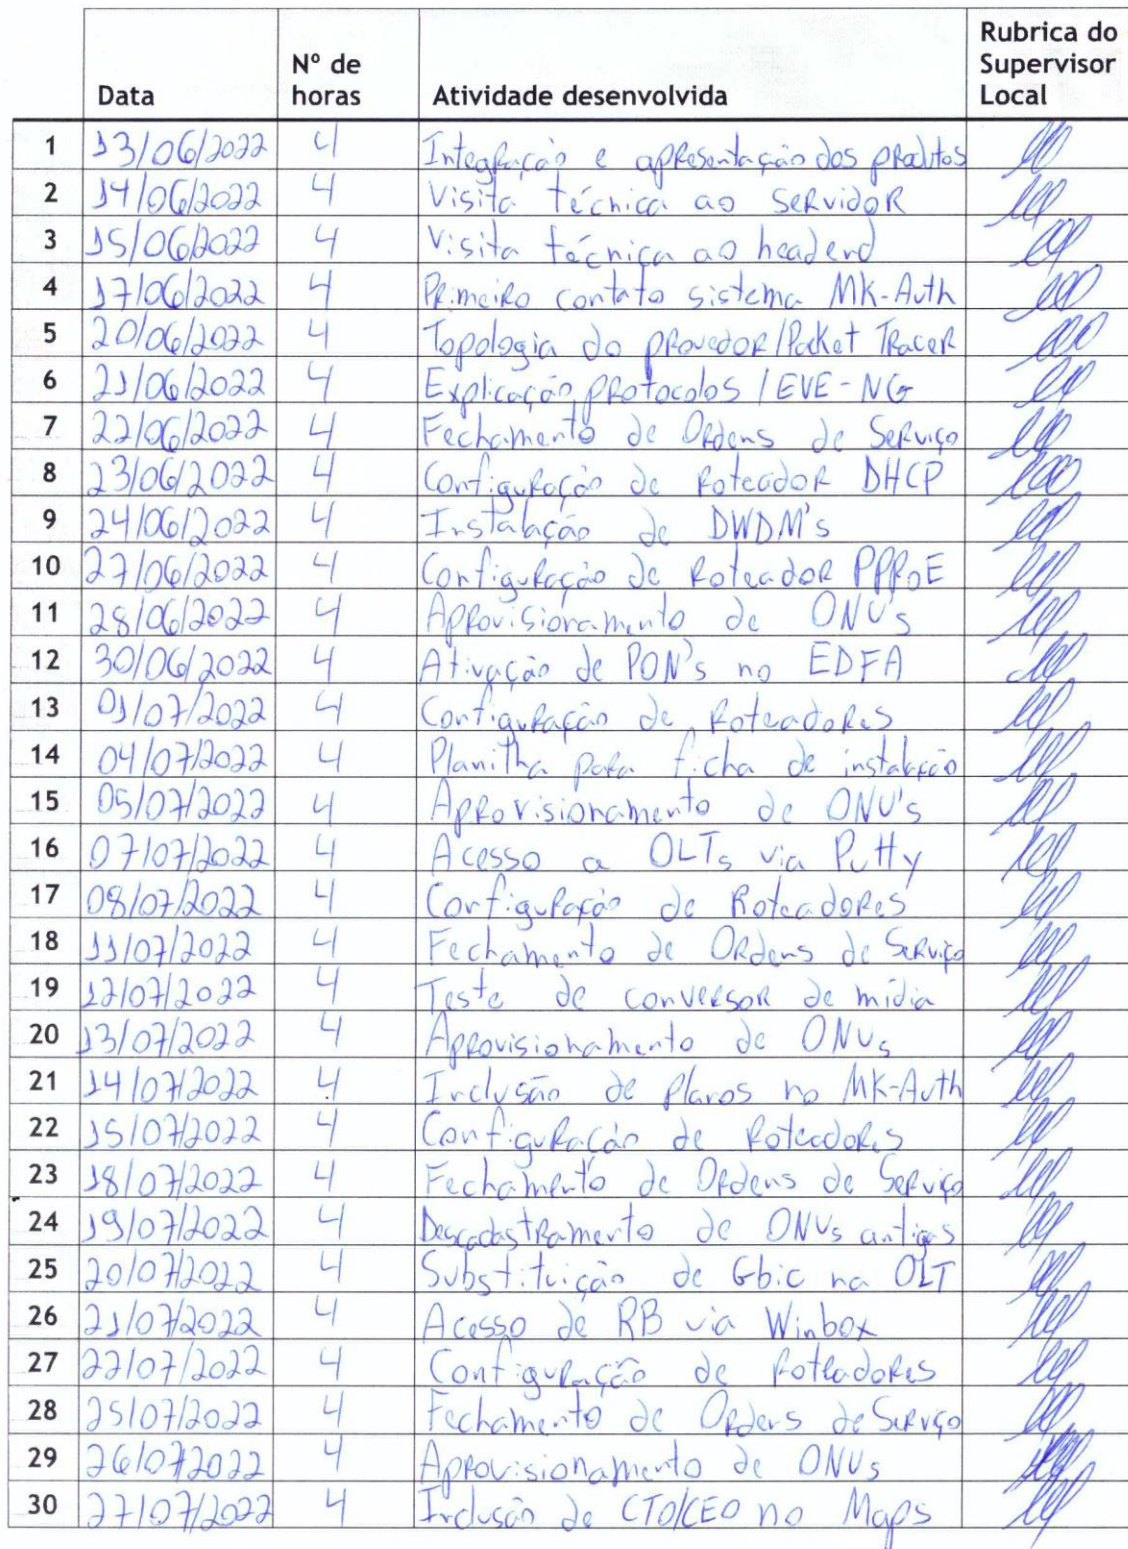 Data Nº de horas Atividade desenvolvida Rubrica do Supervisor Local
1 13/06/2022 4 Integração e apresentação dos produtos
2 14/06/2022 4 Visita técnica ao servidor
3 15/06/2022 4 Visita técnica ao headend
4 17/06/2022 4 Primeiro contato sistema MK-Auth
5 20/06/2022 4 Topologia do provedor/Packet Tracer
6 21/06/2022 4 Explicação protocolos / EVE-NG
7 22/06/2022 4 Fechamento de Ordens de Serviço
8 23/06/2022 4 Configuração de roteador DHCP
9 24/06/2022 4 Instalação de DWDM's
10 27/06/2022 4 Configuração de roteador PPPoE
11 28/06/2022 4 Aprovisionamento de ONU's
12 30/06/2022 4 Ativação de PON's no EDFA
13 01/07/2022 4 Configuração de roteadores
14 04/07/2022 4 Planilha para ficha de instalação
15 05/07/2022 4 Aprovisionamento de ONU's
16 07/07/2022 4 Acesso a OLTs via PuTTy
17 08/07/2022 4 Configuração de Roteadores
18 11/07/2022 4 Fechamento de Ordens de Serviço
19 12/07/2022 4 Teste de conversor de mídia
20 13/07/2022 4 Aprovisionamento de ONUs
21 14/07/2022 4 Inclusão de planos no MK-Auth
22 15/07/2022 4 Configuração de roteadores
23 18/07/2022 4 Fechamento de Ordens de Serviço
24 19/07/2022 4 Descadastramento de ONUs antigas
25 20/07/2022 4 Substituição de Gbic na OLT
26 21/07/2022 4 Acesso de RB via Winbox
27 22/07/2022 4 Configuração de roteadores
28 25/07/2022 4 Fechamento de Ordens de Serviço
29 26/07/2022 4 Aprovisionamento de ONUs
30 27/07/2022 4 Inclusão de CTO/CEO no Maps